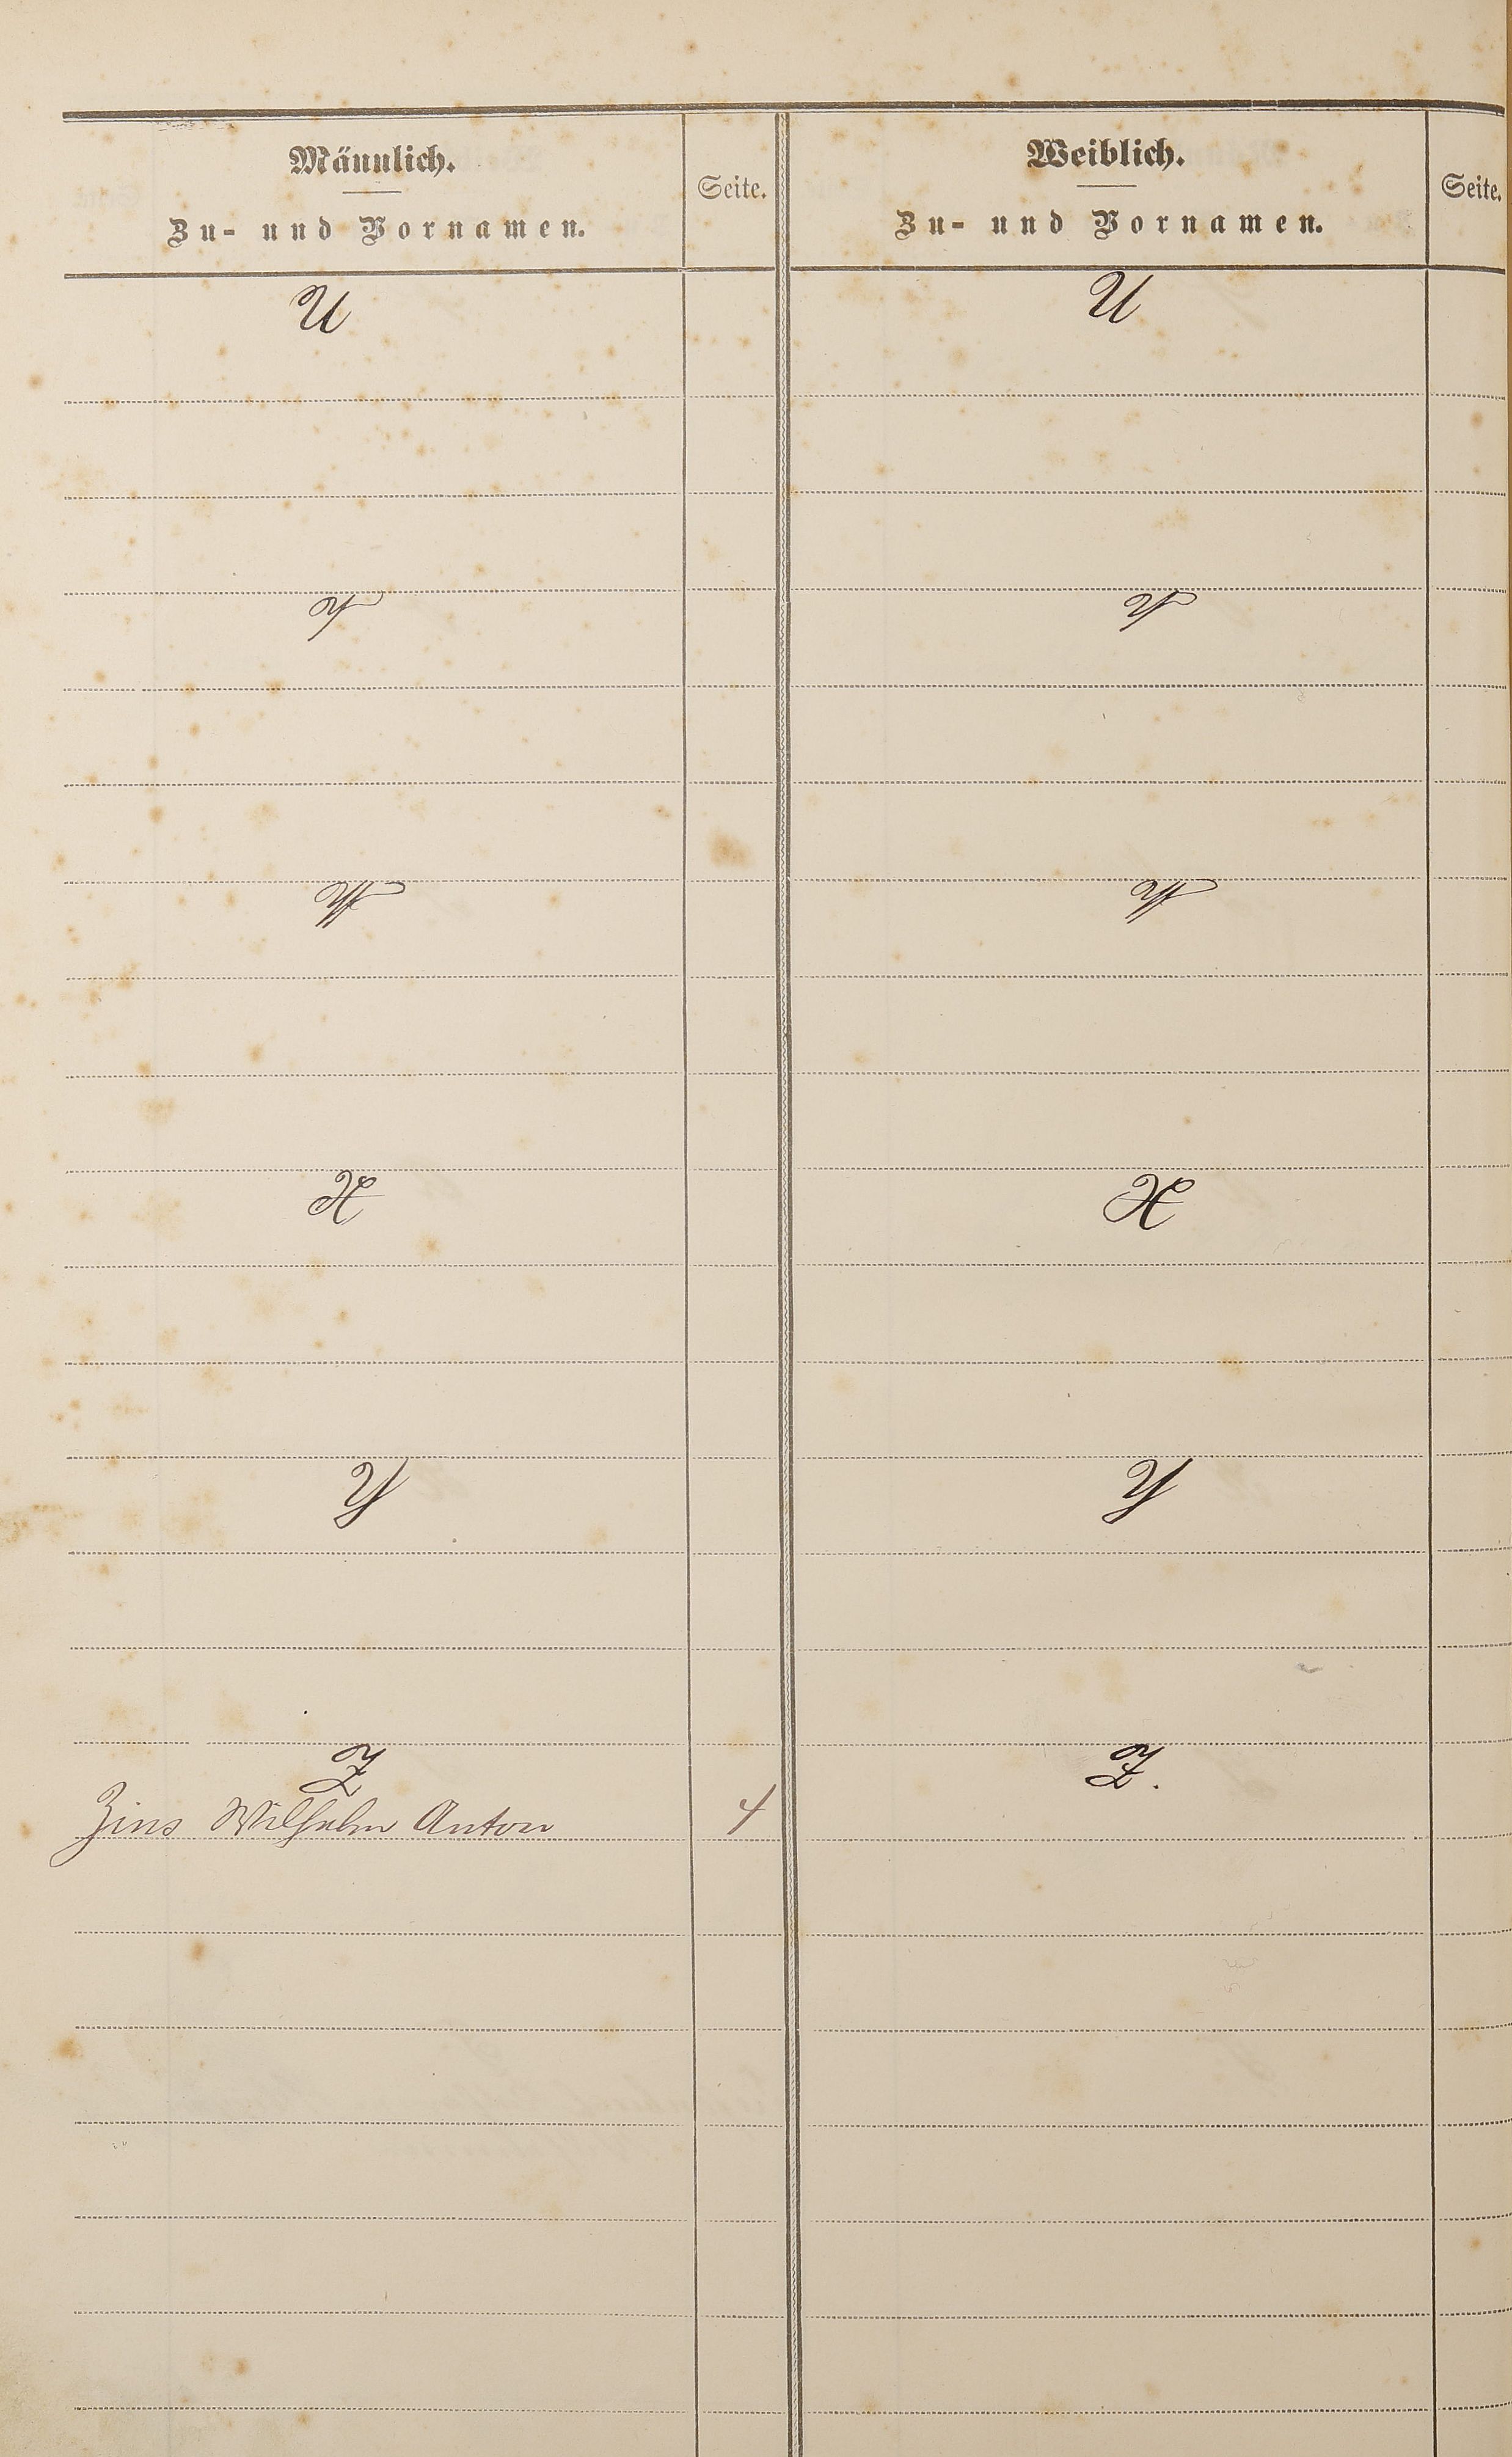 Männlich.
Zu- und Vornamen.
Seite.
Weiblich.
Zu- und Vornamen.
Seite.
U
U
V
V
W
W
X
X
Y
Y
Z
Z.
Zins Wilhelm Anton 4